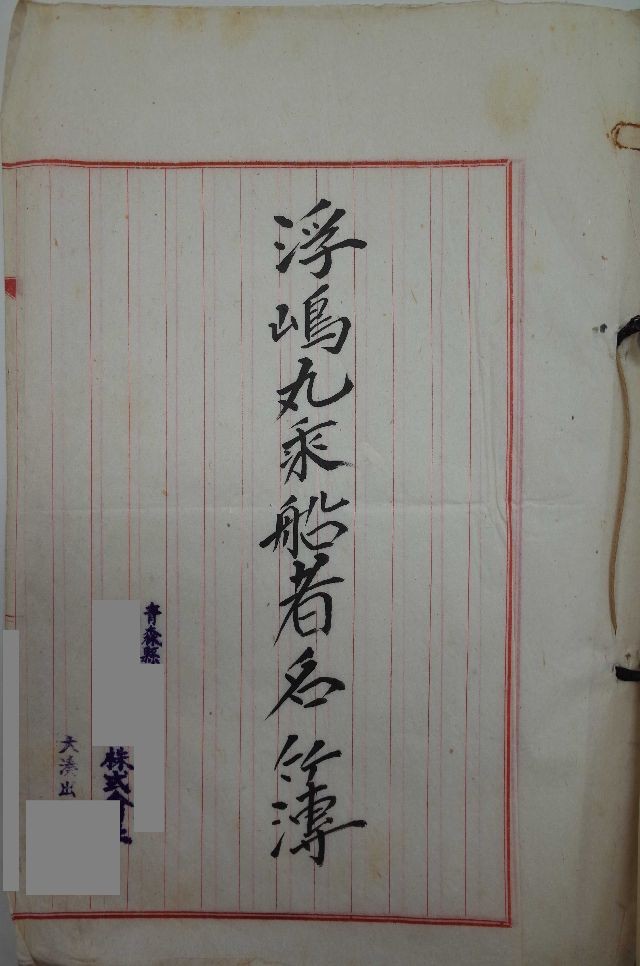 浮嶋丸乗船者名簿
青森縣
株式会社
大湊出